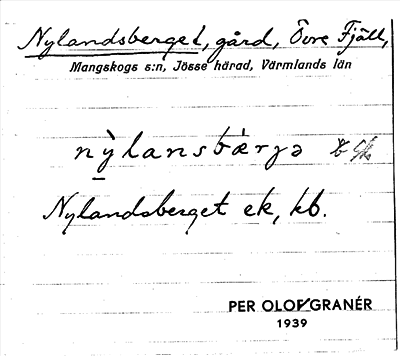 Nylandsberget, gård, Övre Fjäll,
Mangskogs s:n, Jösse härad, Värmlands län
nỳlansbærjə
Nylandsberget ek, kb.
PER OLOF GRANÉR
1939